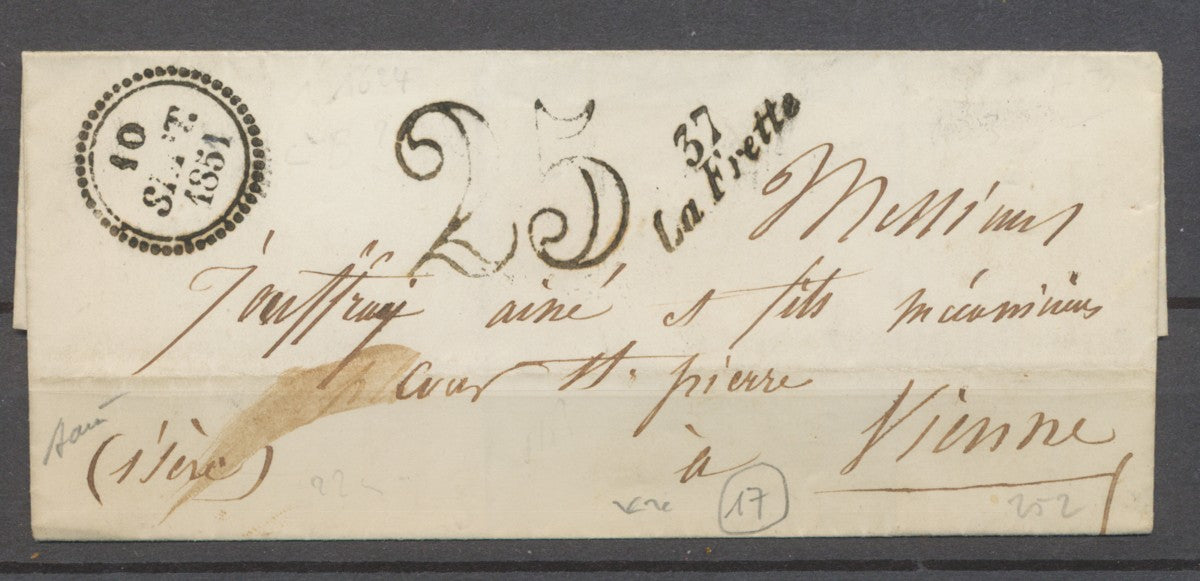 10
SEPT.
1851
25
37
La Frette
Messieurs
Jouffray ainé & fils mécaniciens
cour St. pierre
à Vienne
(isère)
17
252